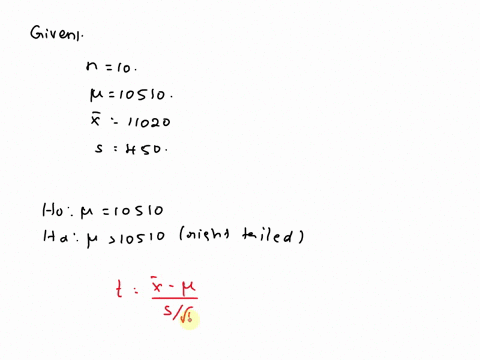 Given:
n = 10.
μ = 10510.
x̄ = 11020
s = 450.
H0: μ = 10510
Ha: μ > 10510 (right tailed)
t = x̄ - μ
s/√